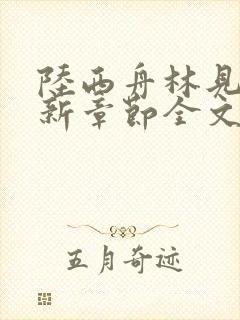 陸西舟林見
新章節全文
五月奇迹